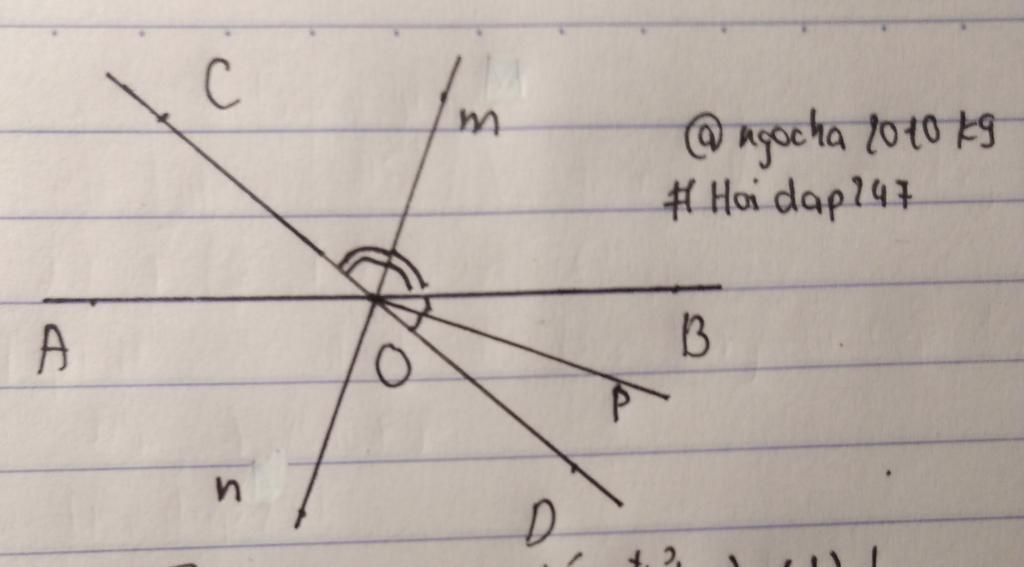 C
m
@ ngocha 2010 kg
# Hoi dap 247
A
B
O
P
n
D